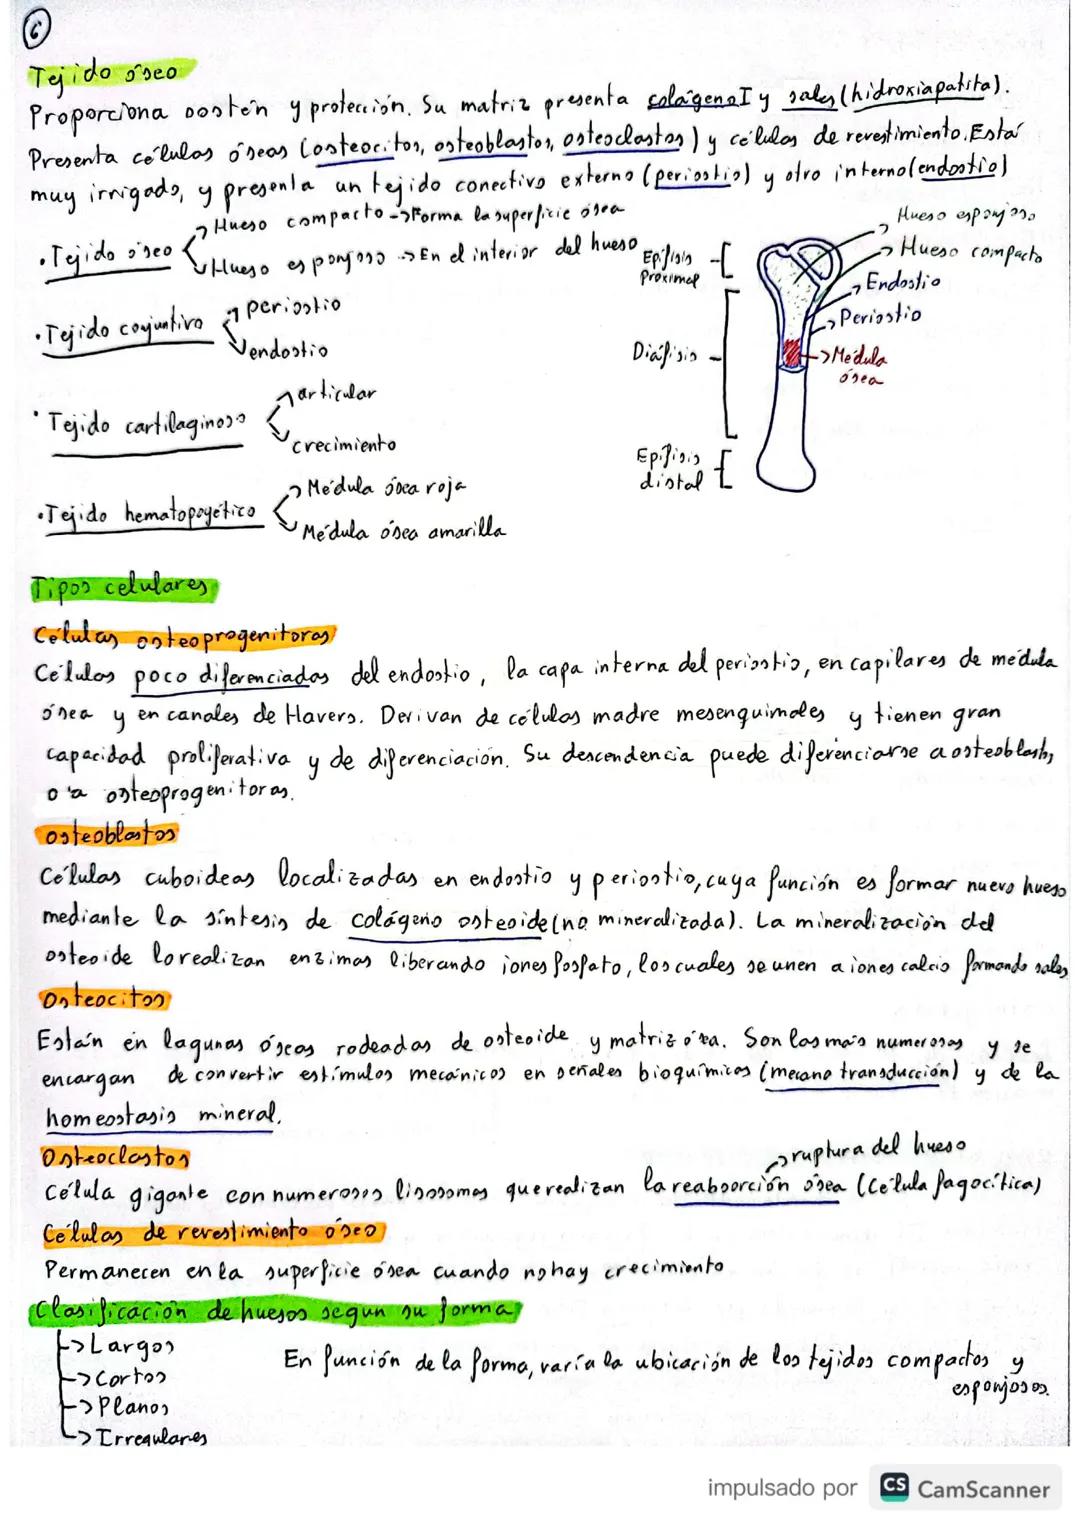 6
Tejido óseo
Proporciona sostén y protección. Su matriz presenta colágeno I y sales (hidroxiapatita).
Presenta células óseas (osteocitos, osteoblastos, osteoclastos) y células de revestimiento. Está
muy irrigado, y presenta un tejido conectivo externo (periostio) y otro interno (endostio)
· Tejido óseo
Hueso compacto → Forma la superficie ósea
Hueso esponjoso → En el interior del hueso
· Tejido conjuntivo
periostio
endostio
· Tejido cartilaginoso
articular
crecimiento
· Tejido hematopoyético
Médula ósea roja
Médula ósea amarilla
Epífisis
Proximal
Diáfisis
Epífisis
distal
Hueso esponjoso
Hueso compacto
Endostio
Periostio
Médula
ósea
Tipos celulares
Células osteoprogenitoras
Células poco diferenciadas del endostio, la capa interna del periostio, en capilares de médula
ósea y en canales de Havers. Derivan de células madre mesenquimales y tienen gran
capacidad proliferativa y de diferenciación. Su descendencia puede diferenciarse a osteoblastos,
o a osteoprogenitoras.
osteoblastos
Células cuboideas localizadas en endostio y periostio, cuya función es formar nuevo hueso
mediante la síntesis de colágeno osteoide (no mineralizada). La mineralización del
osteoide lo realizan enzimas liberando iones fosfato, los cuales se unen a iones calcio formando sales
Osteocitos
Están en lagunas óseas rodeadas de osteoide y matriz ósea. Son las más numerosas y se
encargan de convertir estímulos mecánicos en señales bioquímicas (mecano transducción) y de la
homeostasis mineral.
Osteoclastos
→ ruptura del hueso
Célula gigante con numerosos lisosomas que realizan la reabsorción ósea (Célula fagocítica)
Células de revestimiento óseo
Permanecen en la superficie ósea cuando no hay crecimiento
Clasificación de huesos segun su forma
→ Largos
→ Cortos
→ Planos
→ Irregulares
En función de la forma, varía la ubicación de los tejidos compactos y
esponjosos.
impulsado por CS CamScanner